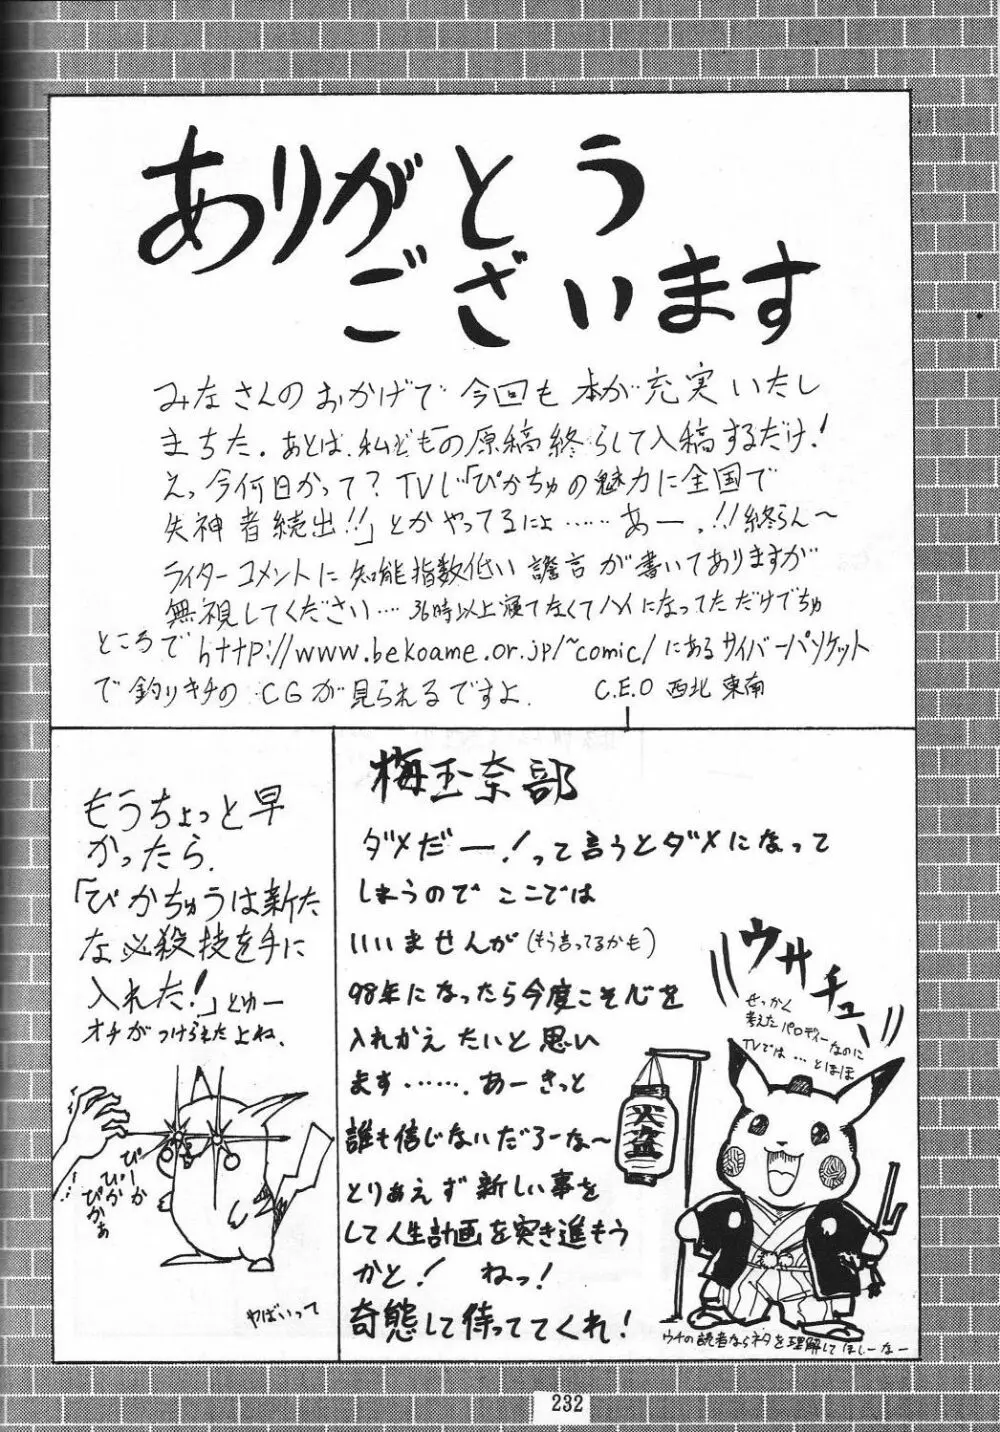 ありがとう
ございます
みなさんのおかげで今回も本が充実いたし
まちた。あとは、私どもの原稿終らして入稿するだけ!
えっ今何日かって?TVじ「ぴかちゅの魅力に全国で
失神者続出!!」とかやってるにょ……あー、!!終らん〜
ライターコメントに知能指数低い譫言が書いてありますが
無視してください…36時以上寝てなくてハイになってただけでちゅ
ところでhttp://www.bekoame.or.jp/~comic/にあるサイバーパソケット
で釣りキチのCGが見られるですよ. C.E.O 西北 東南
もうちょっと早
かったら、
「ぴかちゅうは新た
な必殺技を手に
入れた!」とゆー
オチがつけられたよね、
ぴーか
ぴか
ぴかぁ
やばいって
梅玉奈部
ダメだー!って言うとダメになって
しまうのでここでは
いいませんが(もう言ってるかも)
98年になったら今度こそ心を
入れかえたいと思い
ます……. あーきっと
誰も信じないだろーな〜
とりあえず新しい事を
して人生計画を突き進もう
かと! ねっ!
奇態して待っててくれ!
ウサチュー
せっかく
考えたパロディーなのに
TVでは…とほほ
火盗
ウチの読者ならネタを理解してほしーなー
232